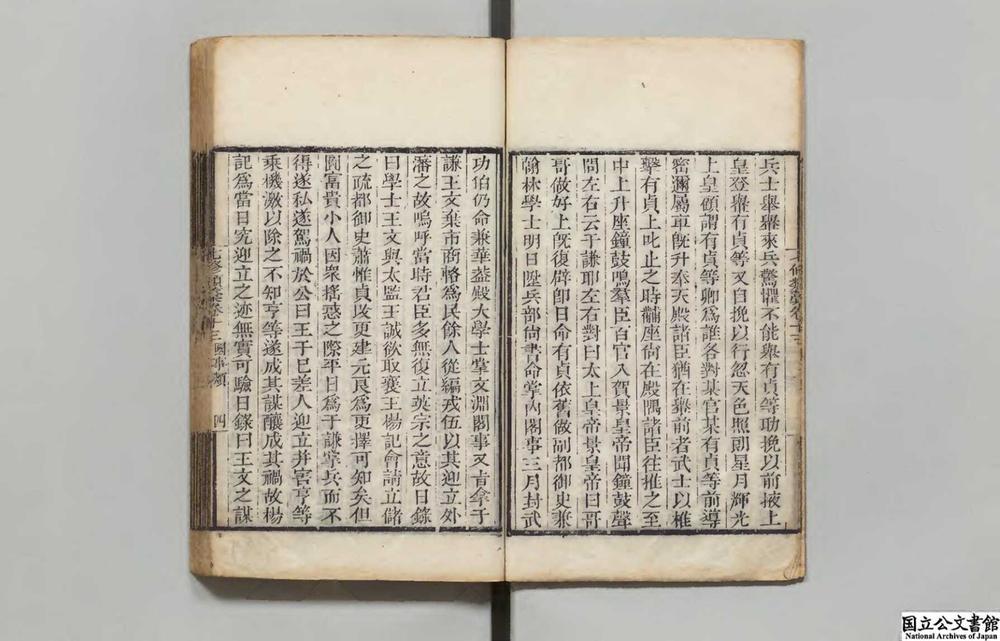 兵士舉轝來兵驚懼不能舉有貞等助挽以前掖上
皇登轝有貞等又自挽以行忽天色照朗星月輝光
上皇顧謂有貞等卿為誰各對某官某有貞等前導
密邇屬車旣升奉天殿諸臣猶在轝前者武士以椎
擊有貞上叱止之時黼座尚在殿隅諸臣往推之至
中上升座鐘鼓鳴羣臣百官入賀景皇帝聞鐘鼓聲
問左右云于謙耶左右對曰太上皇帝景皇帝曰哥
哥做好上旣復辟卽日命有貞依舊做副都御史兼
翰林學士明日陞兵部尚書命掌內閣事三月封武
七修類藁卷十三
功伯仍命兼華葢殿大學士掌文淵閣事又肯拿于
謙王文棄市商輅為民餘人從編戎伍以其迎立外
藩之故嗚呼當時君臣多無復立英宗之意故日錄
曰學士王文與太監王誠欲取襄王楊記會請立儲
之疏都御史蕭惟貞改更建元良為更擇可知矣但
圖富貴小人因衆搖惑之際平日為于謙掌兵而不
得遂私遂駕禍於公曰王于已差人迎立井官亨等
乘機激以除之不知亨等遂成其謀釀成其禍故楊
記為當日究迎立之迹無實可驗日錄曰王文之謀
七修類藁卷十三 國事類 四
国立公文書館
National Archives of Japan